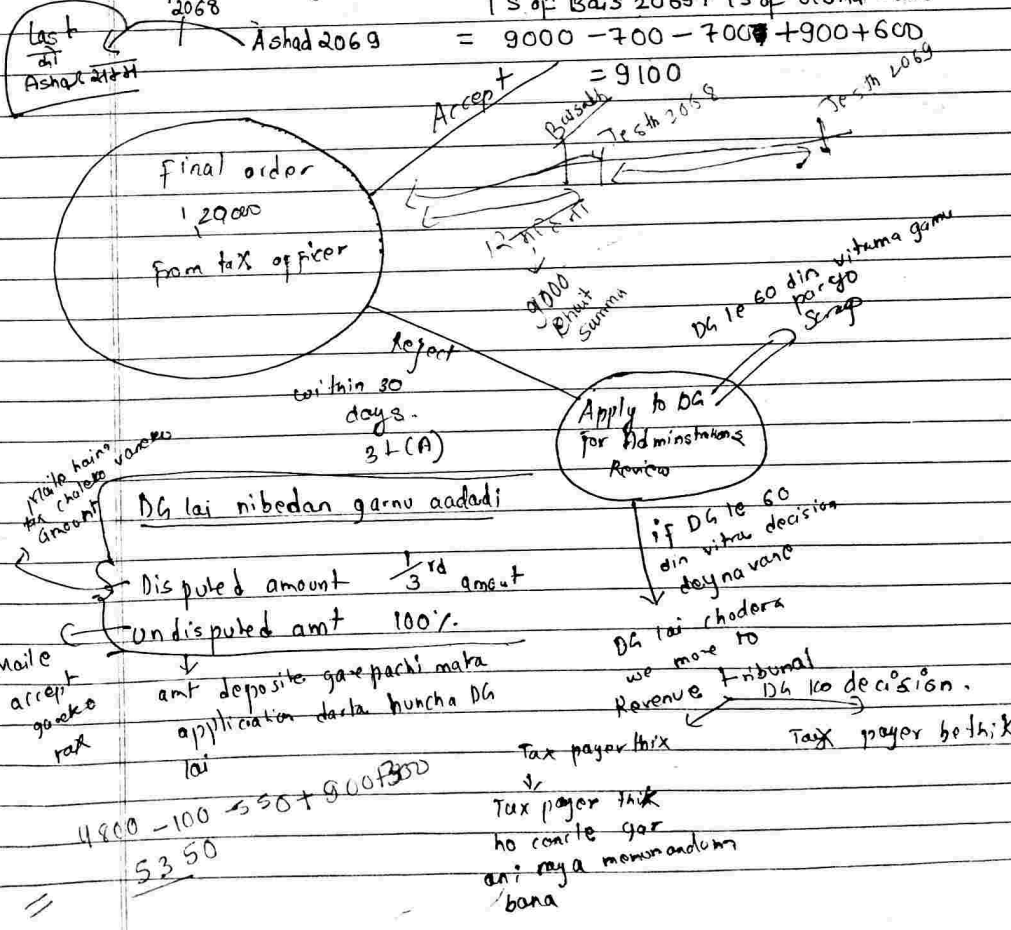 2068
Last
को
Ashad
Ashad 2069
= 9000 - 700 - 700 + 900 + 600
= 9100
Accept
Baisakh
Jesth 2068
Jesth 2069
12
9000
Chait
Summa
Final order
1,20000
From tax officer
Reject
within 30
days.
DG le 60 din vitrama garnu
paryo
Apply to DG
for Adminstrations
Review
Maile haina
tax chaleko vaneko
amount
DG lai nibedan garnu aadadi
Disputed amount 1/3 rd amout
undisputed amt 100%.
Maile
accept
gareko
tax
amt deposite garepachi matra
appliciation darta huncha DG
lai
if DG le 60
din vitra decision
deyna vane
DG lai chodera
we move to
Revenue tribunal
DG ko decision.
Tax payer thix
Tax payer bethik
Tax payer thik
ho concle gar
ani
bana
4800 - 100 - 550 + 900 + 300
= 5350